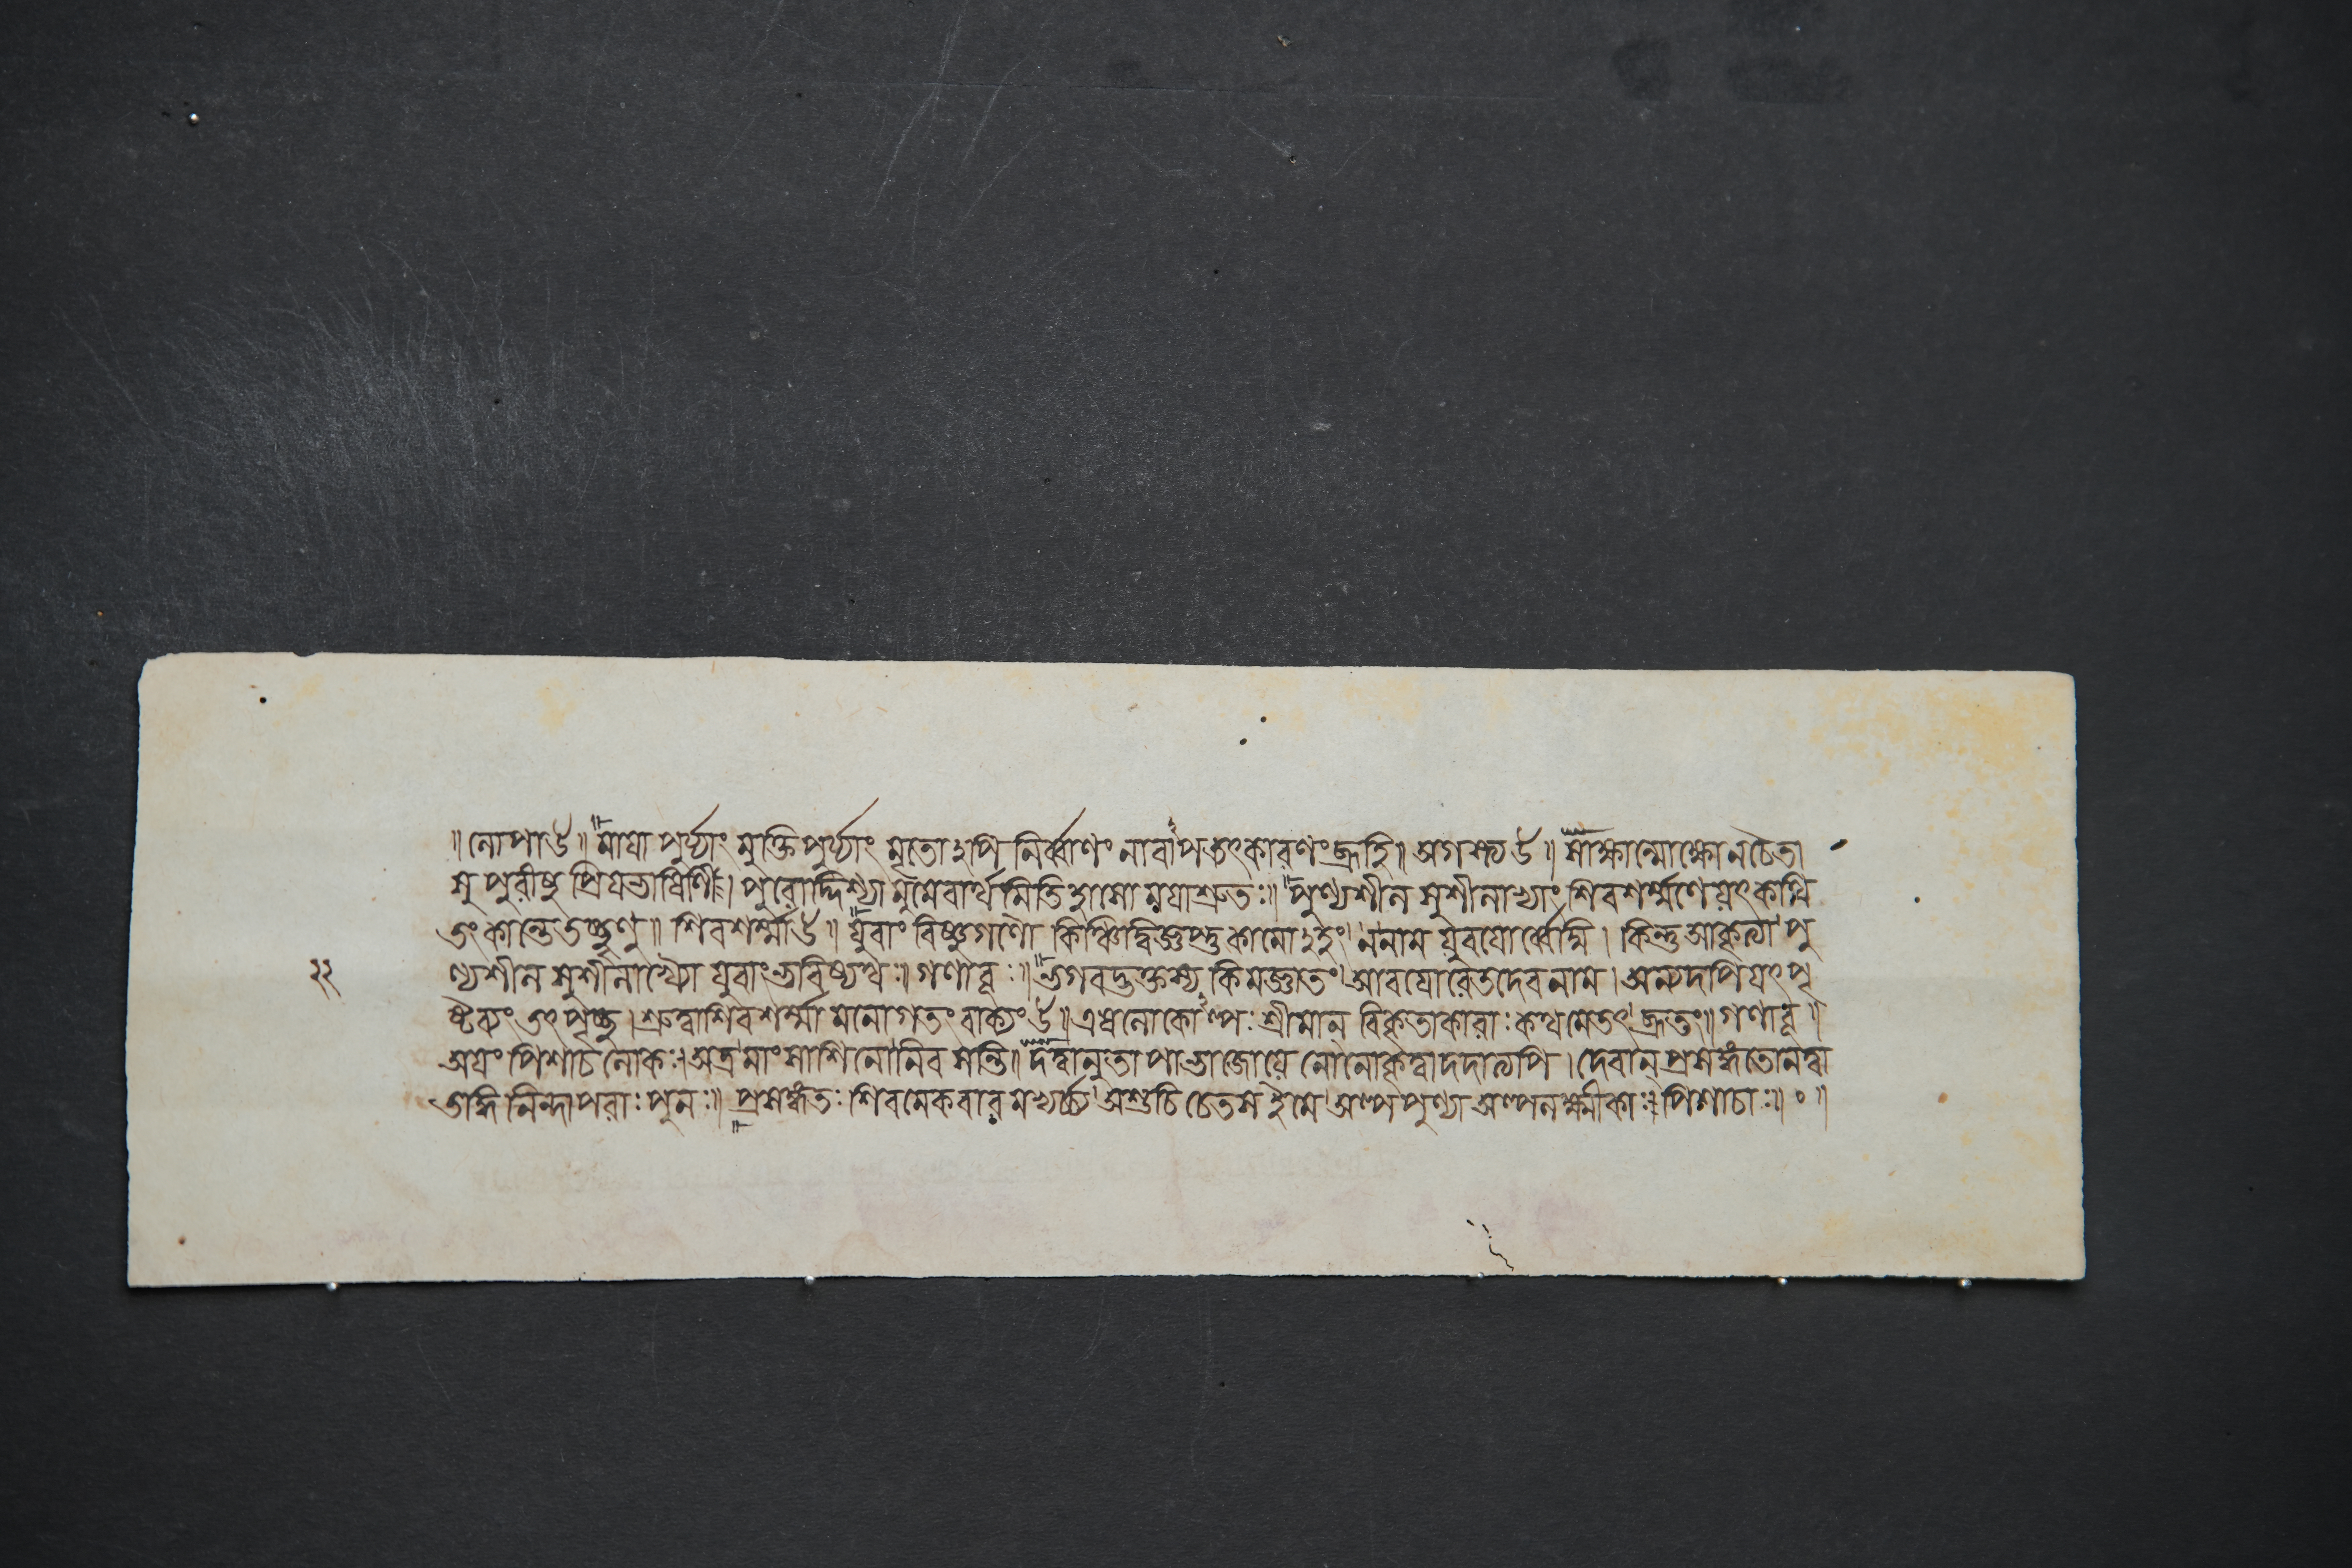 ॥ লোপা উ॥ মায়াপুর্য্যাং মুক্তিপুর্য্যাং মৃতোঽপি নির্ব্বাণং নাবাপ তৎকারণং ব্রূহি॥ অগস্ত্য উ॥ সাক্ষান্মোক্ষো ন চৈতা
সু পুরীষু প্রিয়ভাষিণি। পুরোদ্দিশ্যামুমেবার্থমিতিহাসো ময়া শ্রুতঃ॥ পুণ্যশীল সুশীলাভ্যাং শিবশর্ম্মণে যৎ কথি
তং কান্তে তচ্ছৃণু॥ শিবশর্ম্মা উ॥ যুবাং বিষ্ণুগণৌ কিঞ্চিদ্বিজ্ঞপ্তুকামোঽহং ন নাম যুবয়োর্ব্বেদ্মি। কিন্তু আকৃত্যা পু
২২ ণ্যশীল সুশীলাখ্যৌ যুবাং ভবিষ্যথঃ। গণাবূঃ॥ ভগবদ্ভক্তস্য কিমজ্ঞাতং আবয়োরেতদেব নাম। অন্যদপি যৎ পৃ
ষ্টব্যং তৎ পৃচ্ছ। শ্রুত্বা শিবশর্ম্মা মনোগতং বাক্যং উ॥ এষ লোকোঽল্পঃ শ্রীমান্ বিকৃতাকারাঃ কথমেতৎ ব্রূতং॥ গণাবূ॥
অয়ং পিশাচলোকঃ। অত্র মাংসাশিনো নিবসন্তি॥ দত্বানুতাপভাজো যে নো নো কৃত্বা দদাত্যপি। দেবান্ প্রসঙ্গতো নত্বা
নিন্দাপরাঃ পুনঃ॥ প্রসঙ্গতঃ শিবমেকবারমভ্যর্চ্চ্য অশুচিচেতস ইমে অল্পপুণ্যা অল্পলক্ষ্মীকাঃ পিশাচাঃ॥ ০॥